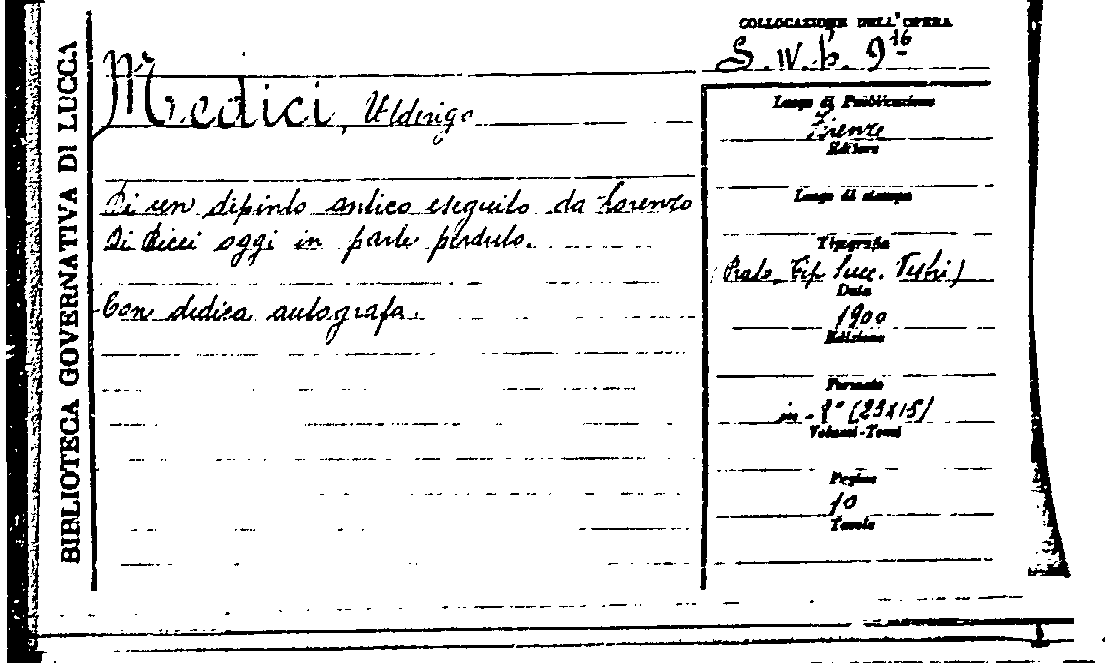 BIBLIOTECA GOVERNATIVA DI LUCCA
COLLOCAZIONE DELL'OPERA
S. IV. b. 9 16
Medici, Ulderigo
Di un dipinto antico eseguito da Lorenzo
Di Bicci oggi in parte perduto.
Con dedica autografa.
Luogo di Pubblicazione
Firenze
Editore
Luogo di stampa
Tipografia
(Prato, Tip. Succ. Vestri)
Data
1900
Edizione
Formato
in-8° (23x15)
Volumi-Tomi
Pagine
10
Tavole